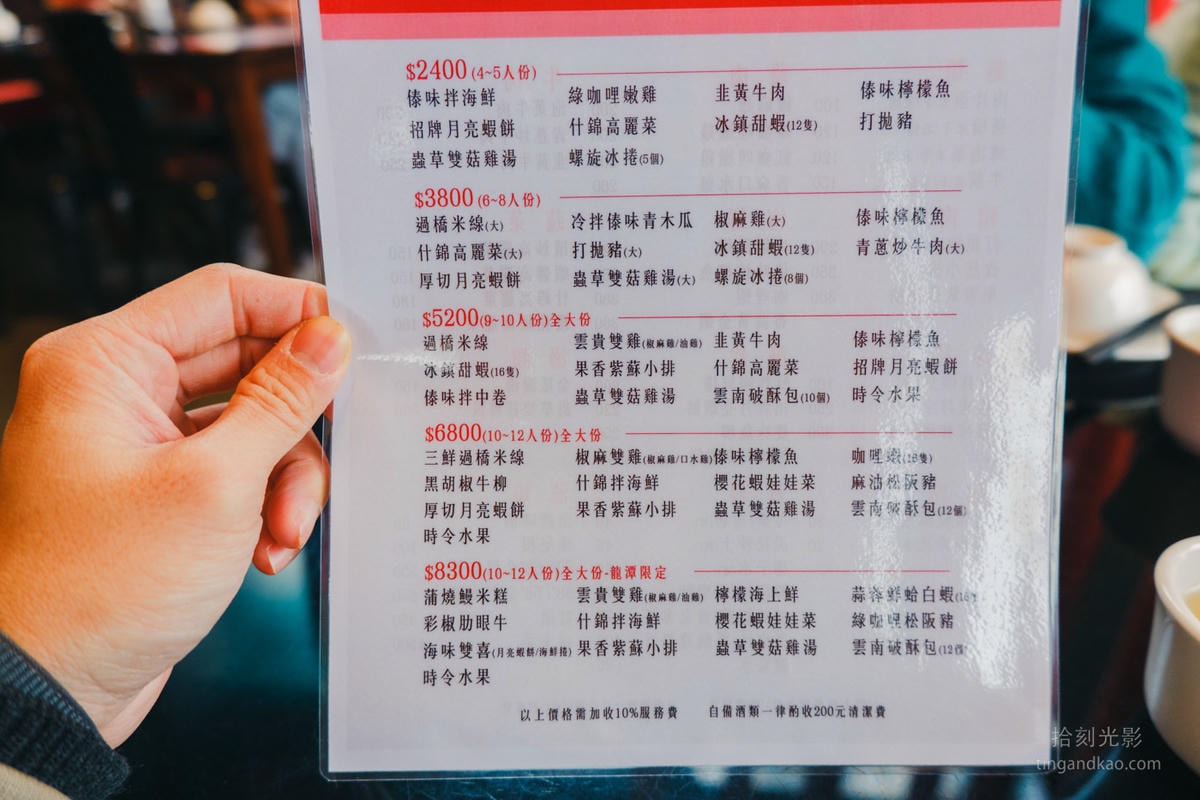 $2400 (4~5人份)
傣味拌海鮮 綠咖哩嫩雞 韭黃牛肉 傣味檸檬魚
招牌月亮蝦餅 什錦高麗菜 冰鎮甜蝦(12隻) 打拋豬
蟲草雙菇雞湯 螺旋冰捲(5個)
$3800 (6~8人份)
過橋米線(大) 冷拌傣味青木瓜 椒麻雞(大) 傣味檸檬魚
什錦高麗菜(大) 打拋豬(大) 冰鎮甜蝦(12隻) 青蔥炒牛肉(大)
厚切月亮蝦餅 蟲草雙菇雞湯(大) 螺旋冰捲(8個)
$5200(9~10人份)全大份
過橋米線 雲貴雙雞(椒麻雞/油雞) 韭黃牛肉 傣味檸檬魚
冰鎮甜蝦(16隻) 果香紫蘇小排 什錦高麗菜 招牌月亮蝦餅
傣味拌中卷 蟲草雙菇雞湯 雲南破酥包(10個) 時令水果
$6800(10~12人份)全大份
三鮮過橋米線 椒麻雙雞(椒麻雞/口水雞) 傣味檸檬魚 咖哩蝦(16隻)
黑胡椒牛柳 什錦拌海鮮 櫻花蝦娃娃菜 麻油松阪豬
厚切月亮蝦餅 果香紫蘇小排 蟲草雙菇雞湯 雲南破酥包(12個)
時令水果
$8300(10~12人份)全大份-龍潭限定
蒲燒鰻米糕 雲貴雙雞(椒麻雞/油雞) 檸檬海上鮮 蒜蓉鮮蛤白蝦
彩椒肋眼牛 什錦拌海鮮 櫻花蝦娃娃菜 綠咖哩松阪豬
海味雙喜(月亮蝦餅/海鮮捲) 果香紫蘇小排 蟲草雙菇雞湯 雲南破酥包(12個)
時令水果
以上價格需加收10%服務費 自備酒類一律酌收200元清潔費
拾刻光影
tingandkao.com